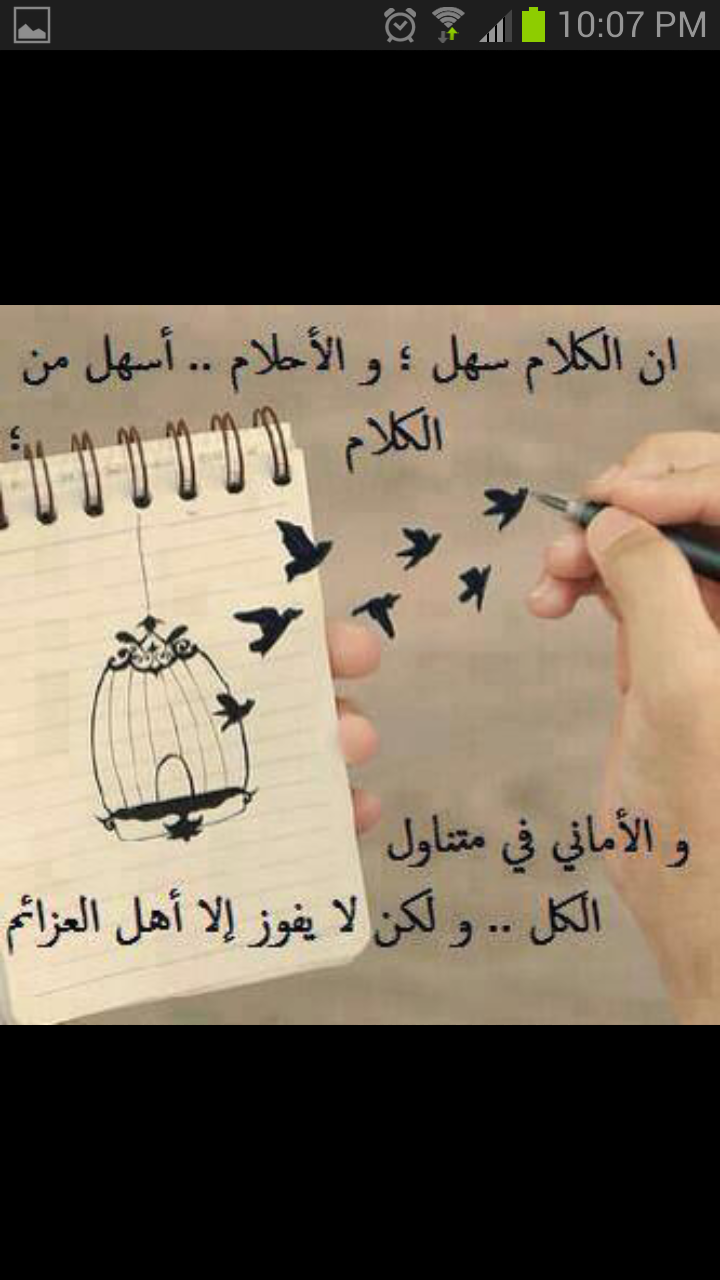 10:07 PM
ان الكلام سهل ؛ و الأحلام .. أسهل من
الكلام ؛
و الأماني في متناول
الكل .. و لكن لا يفوز إلا أهل العزائم